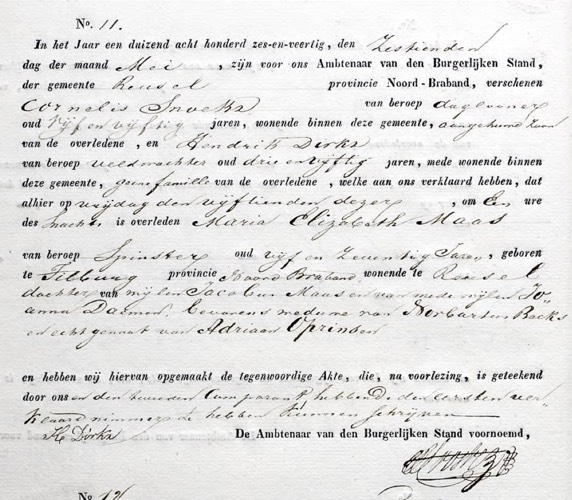 No. 11.
In het Jaar een duizend acht honderd zes-en-veertig, den Zestienden
dag der maand Mei, zijn voor ons Ambtenaar van den Burgerlijken Stand,
der gemeente Reusel provincie Noord-Braband, verschenen
Cornelis Snoeks van beroep daglooner
oud Vijf en vijftig jaren, wonende binnen deze gemeente, aangehuwde Zoon
van de overledene, en Hendrik Dirks
van beroep veldwachter oud drie en vijftig jaren, mede wonende binnen
deze gemeente, geene familie van de overledene, welke aan ons verklaard hebben, dat
alhier op vrijdag den vijftienden dezer, om Een ure
des Snachts is overleden Maria Elizabeth Maas
van beroep Spinster oud vijf en Zeventig Jaren, geboren
te Tilburg provincie Noord Braband wonende te Reusel
dochter van wijlen Jacobus Maas en van mede wijlen Jo-
anna Daamen, bevorens weduwe van Norbartus Backs
en echtgenoot van Adriaan Oprinsen
en hebben wij hiervan opgemaakt de tegenwoordige Akte, die, na voorlezing, is geteekend
door ons en den tweeden Comparant hebbende den eersten ver-
klaard nimmer te hebben kunnen schrijven
H Dirks De Ambtenaar van den Burgerlijken Stand voornoemd,
No. 12